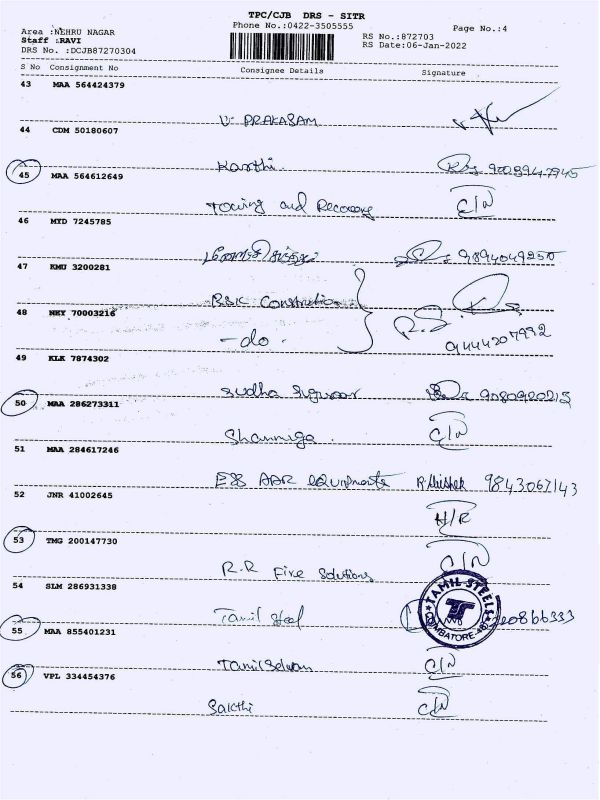 TPC/CJB DRS - SITR
Area :NEHRU NAGAR
Phone No.:0422-3505555
Page No.:4
Staff :RAVI
RS No.:872703
DRS No. :DCJB87270304
RS Date:06-Jan-2022
S No Consignment No Consignee Details Signature
43 MAA 564424379
V. PRAKASAM
44 CDM 50180607
Karthi.
45 MAA 564612649
Towing and Recovery C/N
46 MTD 7245785
9894049250
47 KMU 3200281
R&K Constrution
48 NEY 70003216
- do - 9444207992
49 KLK 7874302
Sudha 9080920215
50 MAA 286273311
Shanmuga. C/N
51 MAA 284617246
AAR equipments R Abishek 9843067143
52 JNR 41002645
H/R
53 TMG 200147730
R.R Fire Solutions C/N
54 SLM 286931338
Tamil Steel
TAMIL STEELS
COIMBATORE
55 MAA 855401231
Tamilselvan C/N
56 VPL 334454376
Sakthi C/N